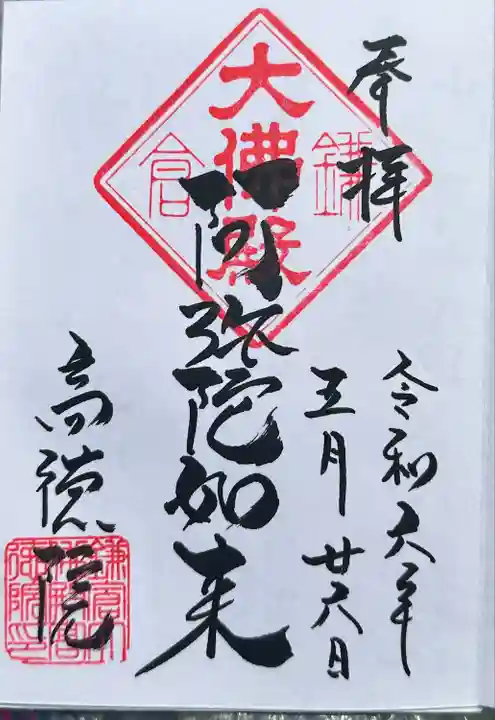 奉拝
令和六年
五月廿六日
鎌倉
大佛殿
阿弥陀如来
高徳院